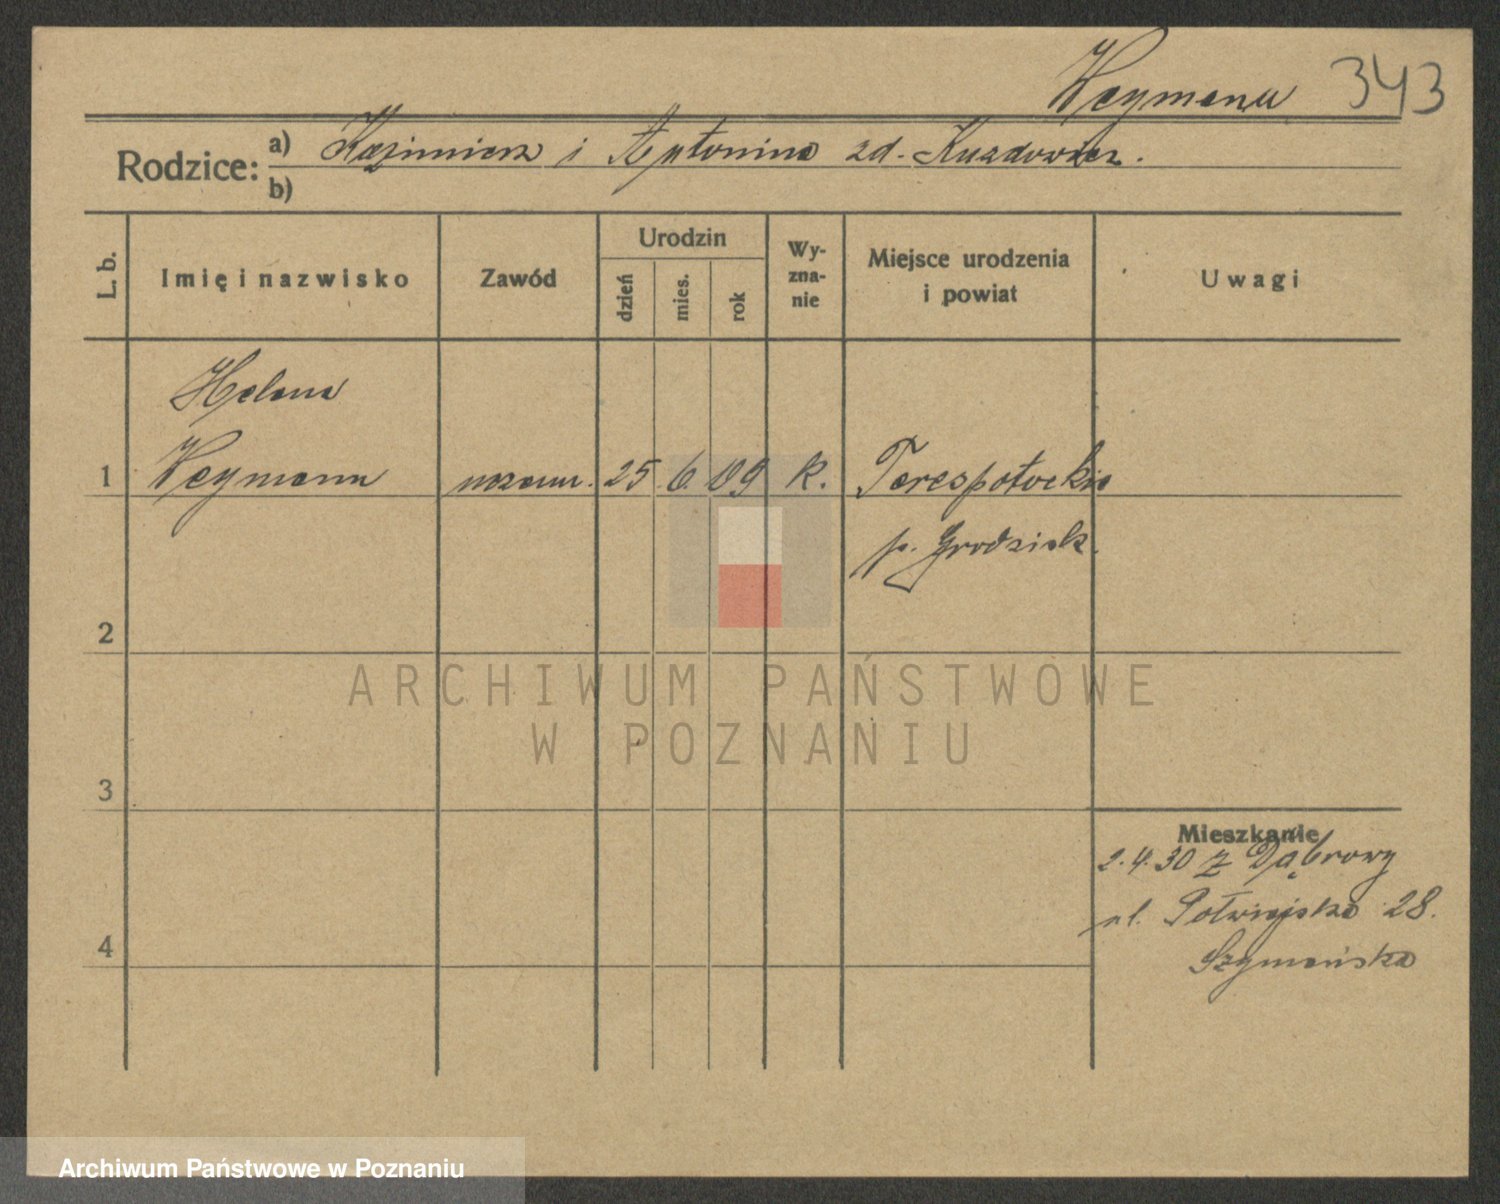 Weymann 343
Rodzice: a) Kazimierz i Antonina zd.
b)
L. b. Imię i nazwisko Zawód Urodzin dzień mies. rok Wy-zna-nie Miejsce urodzenia i powiat Uwagi
Helena
1 Weymann 25 6. 09 k. Terespotockie
p. Grodzisk.
2
ARCHIWUM PAŃSTWOWE
W POZNANIU
3
Mieszkanie
2.4.30 z Dąbrowy
4 ul. Półwiejska 28.
Szymańska
Archiwum Państwowe w Poznaniu